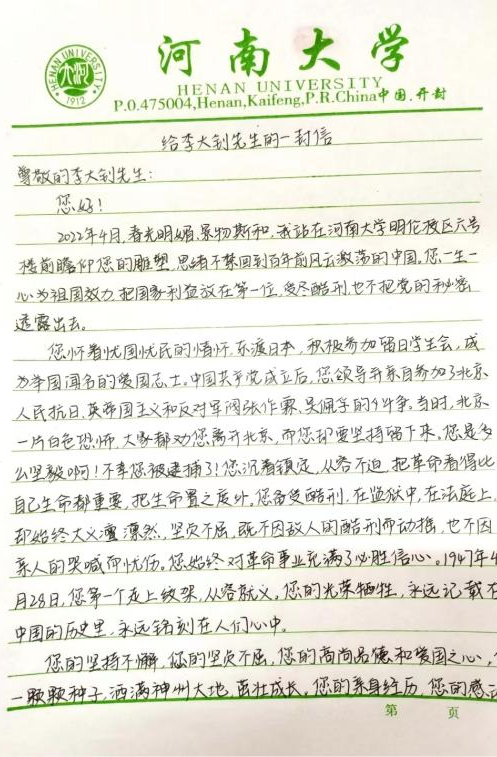 河南大学
HENAN UNIVERSITY
1912
HENAN UNIVERSITY
P.0.475004,Henan,Kaifeng,P.R.China中国.开封
给李大钊先生的一封信
尊敬的李大钊先生:
您好!
2022年4月,春光明媚,景物斯和,我站在河南大学明伦校区六号
楼前瞻仰您的雕塑,思绪不禁回到百年前风云激荡的中国,您一生一
心为祖国效力,把国家利益放在第一位,受尽酷刑也不把党的秘密
透露出去。
您怀着忧国忧民的情怀,东渡日本,积极参加留日学生会,成
为举国闻名的爱国志士。中国共产党成立后,您领导并亲自参加了北京
人民抗日、英帝国主义和反对军阀张作霖、吴佩孚的斗争。当时,北京
一片白色恐怖,大家都劝您离开北京,而您却要坚持留下来,您是多
么坚毅啊!不幸您被逮捕了!您沉着镇定,从容不迫,把革命看得比
自己生命都重要,把生命置之度外。您备受酷刑,在监狱中,在法庭上,
却始终大义凛然,坚贞不屈,既不因敌人的酷刑而动摇,也不因
亲人的哭喊而忧伤。您始终对革命事业充满了必胜信心。1947年4
月28日,您第一个走上绞架,从容就义。您的光荣牺牲,永远记载在
中国的历史里,永远铭刻在人们心中。
您的坚持不懈,您的坚贞不屈,您的高尚品德和爱国之心,
一颗颗种子,洒满神州大地,茁壮成长。您的亲身经历,您的感
第 页